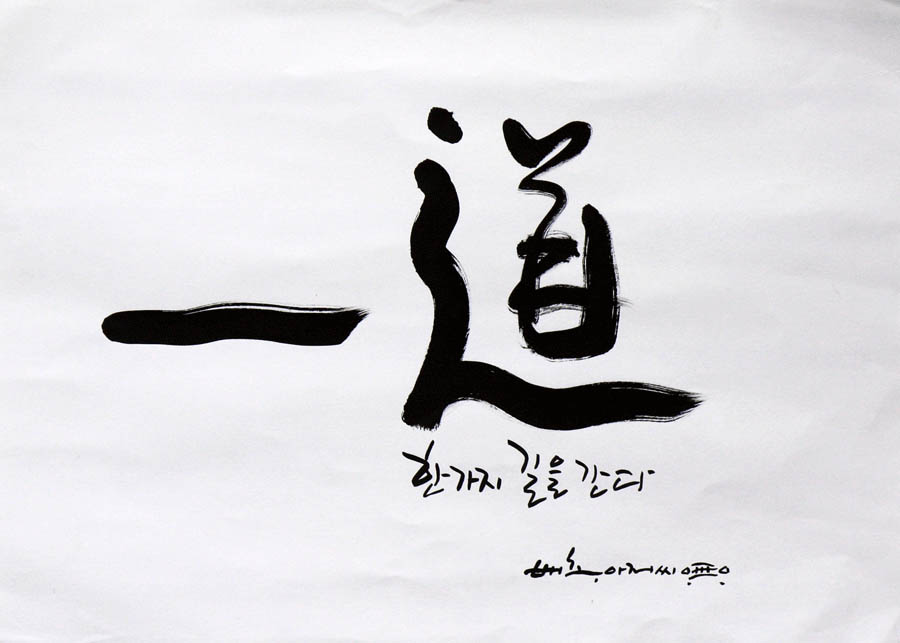 一道
한가지 길을 간다
아저씨